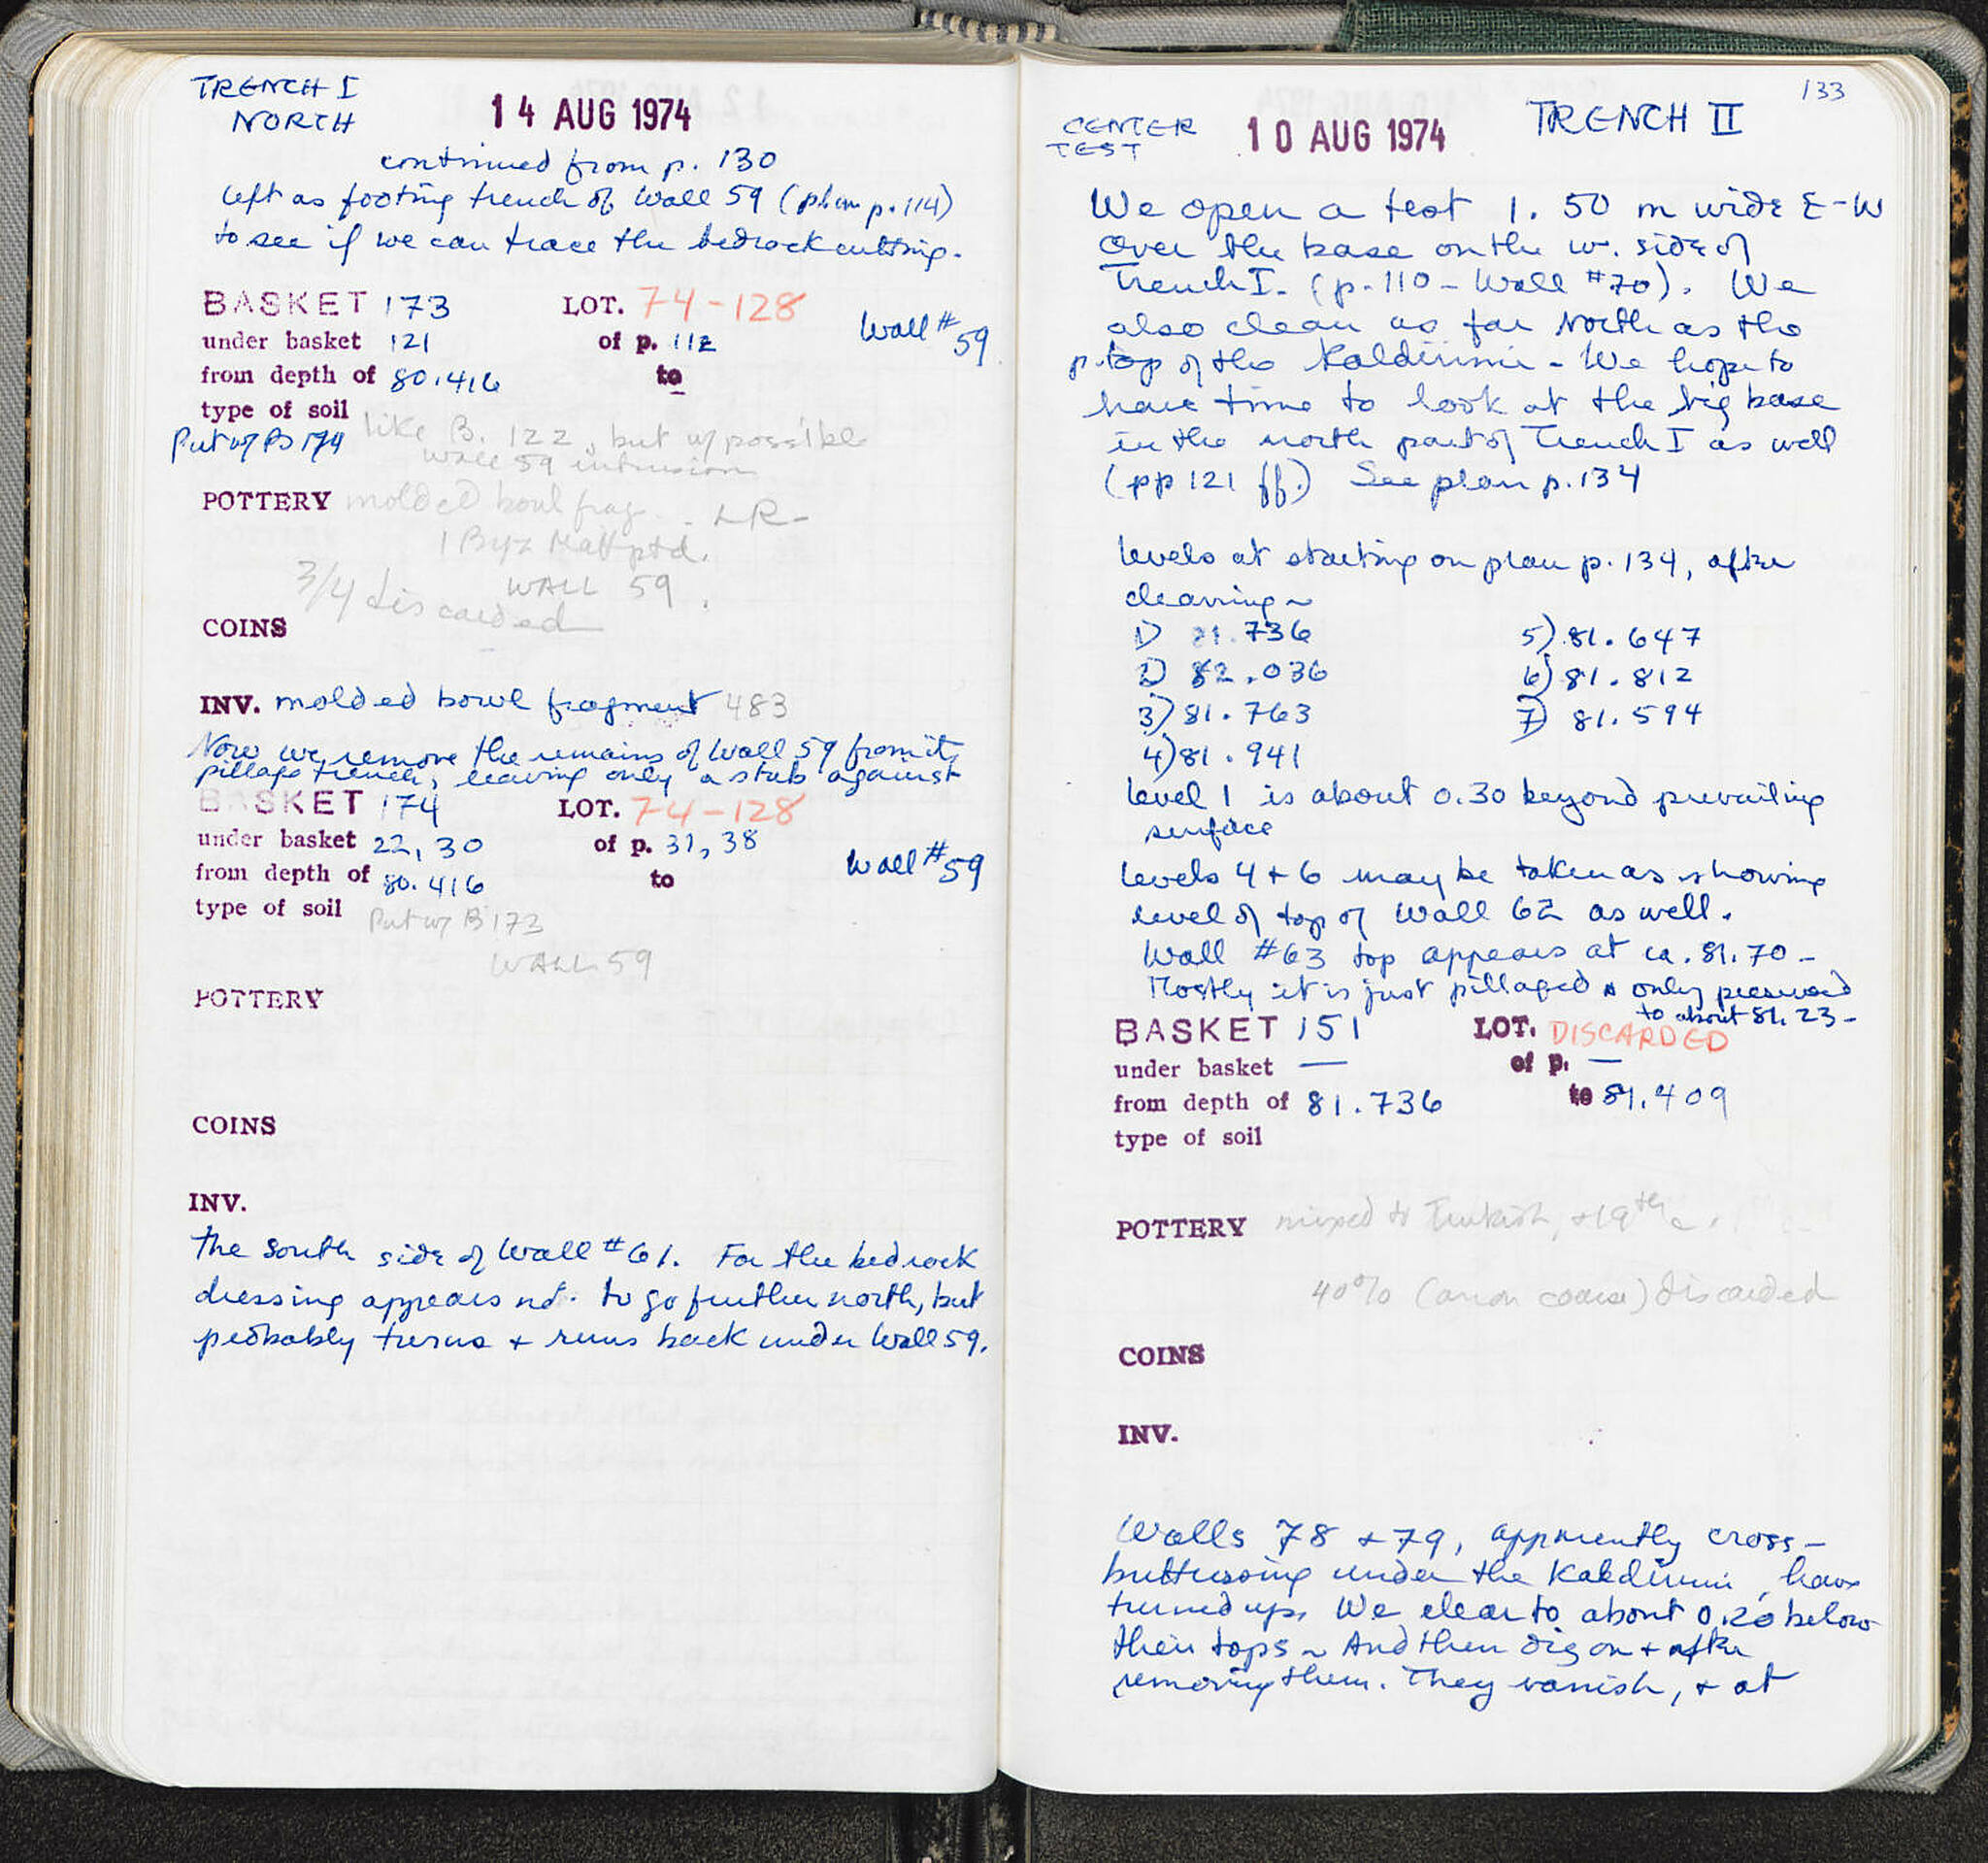 TRENCH I
NORTH
14 AUG 1974
continued from p. 130
left as footing trench of Wall 59 (plan p. 114)
to see if we can trace the bedrock cutting.
BASKET 173 LOT. 74-128
under basket 121 of p. 112 Wall # 59
from depth of 80.416 to
type of soil like B. 122, but w/ possible
Put w/ B 174 Wall 59 intrusion
POTTERY molded bowl frag. - LR -
1 Byz Matt ptd.
WALL 59.
3/4 discarded
COINS
INV. molded bowl fragment 483
Now we remove the remains of Wall 59 from its
pillage trench, leaving only a stub against
BASKET 174 LOT. 74-128
under basket 22, 30 of p. 31, 38
from depth of 80.416 to Wall # 59
type of soil Put w/ B 173
WALL 59
POTTERY
COINS
INV.
the south side of Wall #61. For the bedrock
dressing appears not to go further north, but
probably turns + runs back under Wall 59.
133
CENTER
TEST
10 AUG 1974
TRENCH II
We open a test 1.50 m wide E-W
over the base on the w. side of
Trench I. (p. 110 - Wall #70). We
also clean as far North as the
top of the Kaldirimi - We hope to
have time to look at the big base
in the north part of Trench I as well
(pp 121 ff.) See plan p. 134
levels at starting on plan p. 134, after
cleaning ~
1) 81.736 5) 81.647
2) 82.036 6) 81.812
3) 81.763 7) 81.594
4) 81.941
level 1 is about 0.30 beyond prevailing
surface
levels 4 + 6 may be taken as showing
level of top of Wall 62 as well.
Wall #63 top appears at ca. 81.70 -
Mostly it is just pillaged & only preserved
to about 81.23 -
BASKET 151 LOT. DISCARDED
under basket — of p. —
from depth of 81.736 to 81.409
type of soil
POTTERY mixed to Turkish, +19th c.
40% (anon coarse) discarded
COINS
INV.
Walls 78 + 79, apparently cross-
buttressing under the Kaldirimi, have
turned up. We clear to about 0.20 below
their tops ~ And then dig on + after
removing them. They vanish, + at